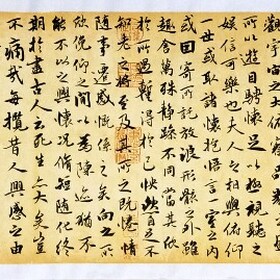 所以遊目騁懷足以極視聽之
娛信可樂也夫人之相與俯仰
一世或取諸懷抱悟言一室之內
或因寄所託放浪形骸之外雖
趣舍萬殊靜躁不同當其欣
於所遇暫得於己快然自足不
知老之將至及其所之既惓情
隨事遷感慨係之矣向之所
欣俛仰之間以為陳迹猶不
能不以之興懷況脩短隨化終
期於盡古人云死生亦大矣豈
不痛哉每攬昔人興感之由